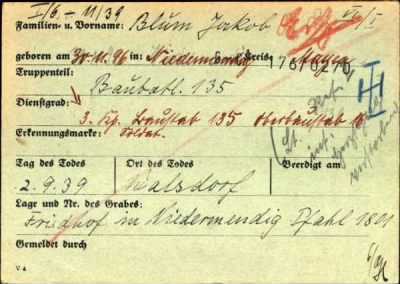 I/6. - 11/39
Familien- u. Vorname: Blum Jakob VI/I
geboren am 30.11.96 in: Niedermendig Kreis: Mayen
1767 0270
Truppenteil:
Baubatl. 135
Dienstgrad:
3. Kp. Baustab 135 Oberbaustab
Erkennungsmarke: Soldat.
verstorben
Tag des Todes Ort des Todes Beerdigt am
2.9.39 Walsdorf
Lage und Nr. des Grabes:
Friedhof in Niedermendig Pfahl 1801
Gemeldet durch
V 4